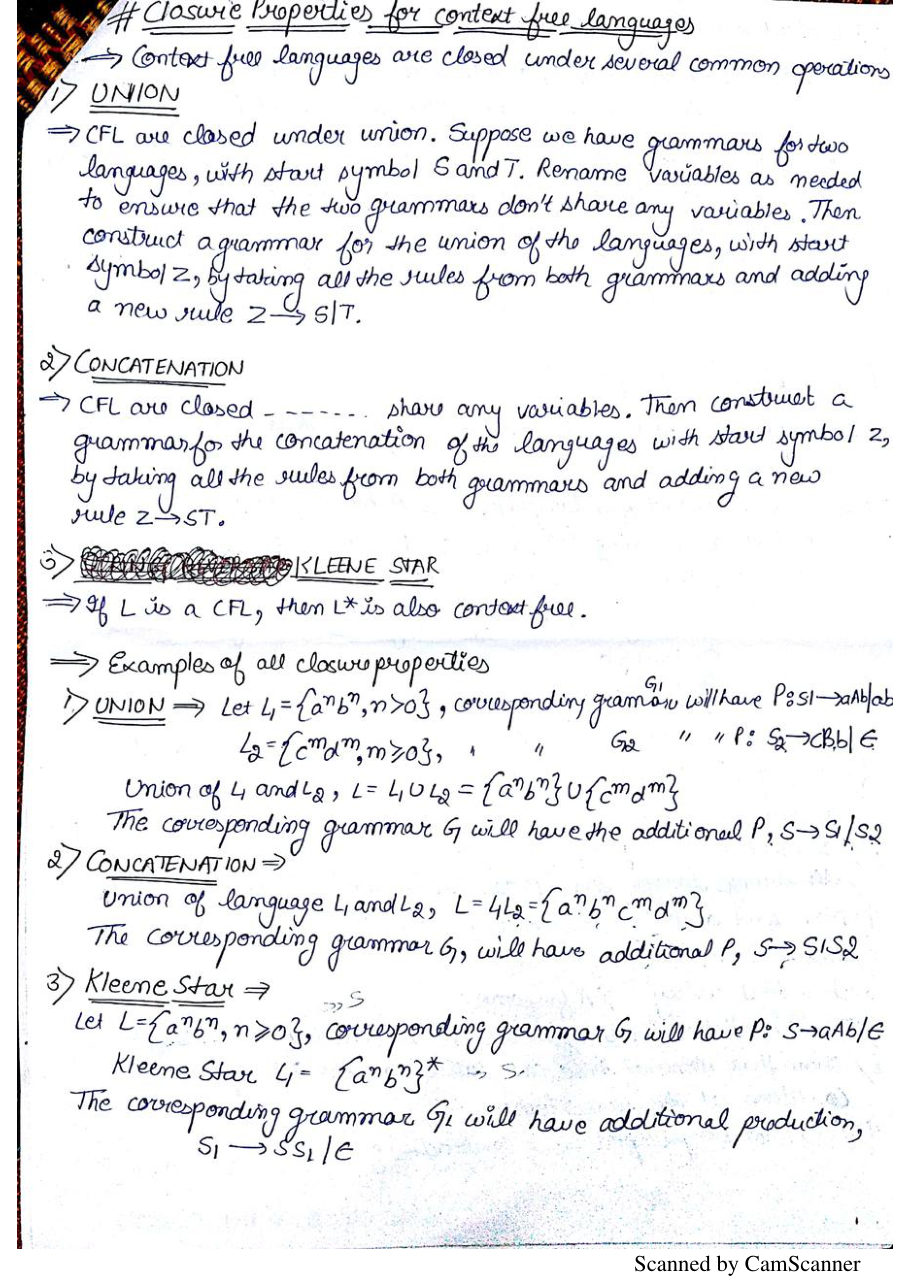 # Closure Properties for context free languages
⇒ Context free languages are closed under several common operations
1) UNION
⇒ CFL are closed under union. Suppose we have grammars for two
languages, with start symbol S and T. Rename variables as needed
to ensure that the two grammars don't share any variables. Then
construct a grammar for the union of the languages, with start
symbol Z, by taking all the rules from both grammars and adding
a new rule Z → S|T.
2) CONCATENATION
⇒ CFL are closed - - - - - - - share any variables. Then construct a
grammar for the concatenation of the languages with start symbol Z,
by taking all the rules from both grammars and adding a new
rule Z → ST.
3) KLEENE STAR
⇒ If L is a CFL, then L* is also context free.
⇒ Examples of all closure properties
1) UNION ⇒ Let L₁ = {aⁿbⁿ, n>0}, corresponding grammar G1 will have P: S1→aAb|ab
L₂ = {cᵐdᵐ, m≥0}, " " G2 " " P: S2→cBb|ϵ
Union of L₁ and L₂, L = L₁ ∪ L₂ = {aⁿbⁿ} ∪ {cᵐdᵐ}
The corresponding grammar G will have the additional P, S→S1/S2
2) CONCATENATION ⇒
Union of language L₁ and L₂, L = L₁L₂ = {aⁿbⁿcᵐdᵐ}
The corresponding grammar G, will have additional P, S→ S1S2
3) Kleene Star ⇒
→ S
Let L = {aⁿbⁿ, n≥0}, corresponding grammar G will have P: S→aAb/ϵ
Kleene Star L₁ = {aⁿbⁿ}* → S
The corresponding grammar G1 will have additional production,
S₁ → SS₁/ϵ
Scanned by CamScanner